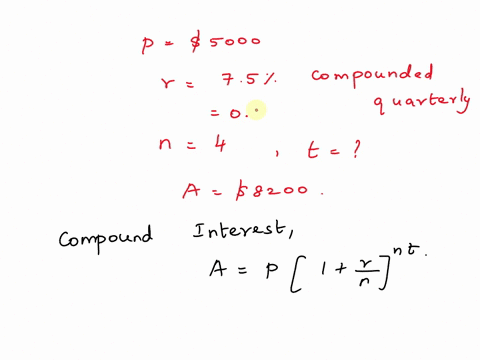 P = $5000
r = 7.5% compounded quarterly
= 0.
n = 4 , t = ?
A = $8200.
Compound Interest,
A = P [ 1 + r/n ]^nt.